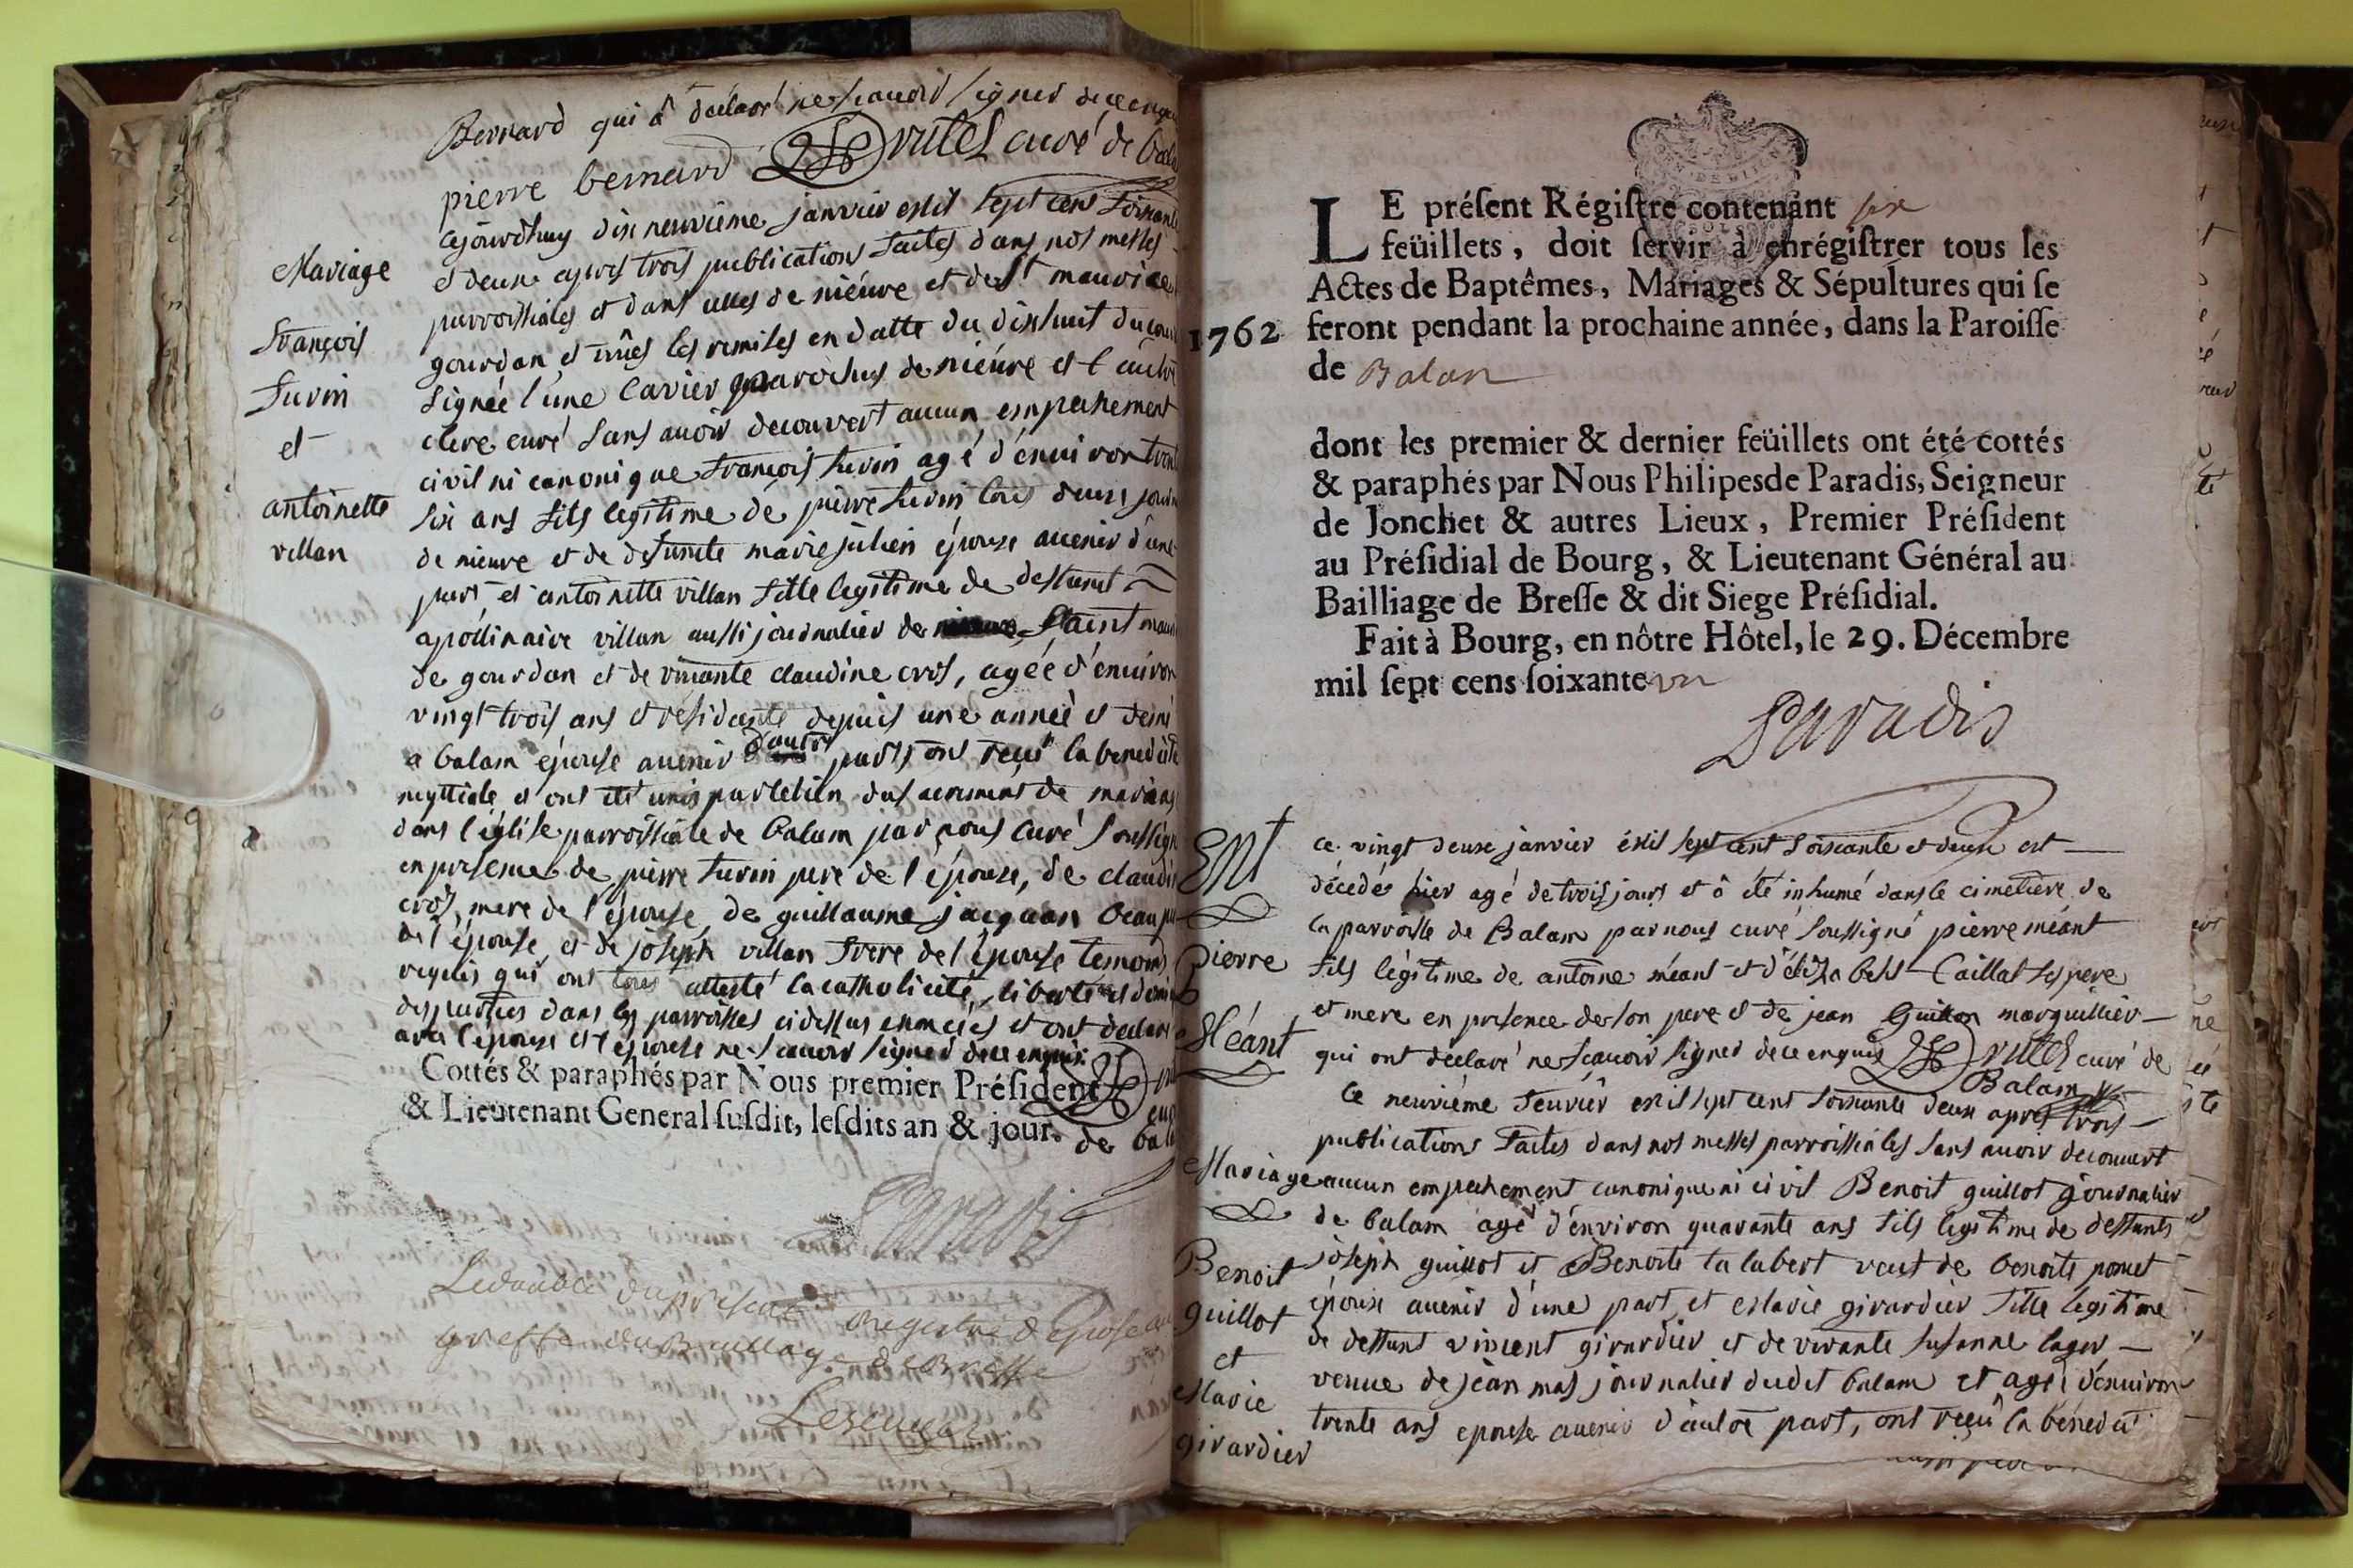 Bernard qui â declaré ne scauoir signer de ce enquis
pierre bernard rutel curé de bala
cejourdhuy dix neuvieme janvier mil sept cent soixante
Mariage
et deux apres trois publications faites dans nos messes
parroissiales et dans celles de niévre et de St maurice
François
gourdan et vûes les remises en datte du dixhuit du cour
Furin
signée l'une Cavier parochus de niévre et l'autre
et
clere curé sans auoir decouvert aucun empechement
civil ni canonique François furin agé d'énuiron trent
antoinette
six ans fils legitime dé pierre furin tous deux journ
villan
de nieure et de defuncte marie julien époux auenir d'une
part et antoinette villan fille legitime de deffunct
apollinaire villan aussi journalier de Saint mau
de gourdan et de viuante claudine cros, agée d'énuiron
vingt trois ans et residante depuis une année et demi
a balam épouse auenir d'autre part, ont reçu la benedicti
nuptiale et ont été unis par le lien du sacrement de mariag
dans l'église parroissiale de balam par nous curé soussign
en presence de pierre furin pere de l'époux, de claudi
cros, mere de l'épouse, de guillaume jacquan beau pe
de l'épouse, et de joseph villan frere de l'épouse temoins
requis qui ont tous attesté la catholicité, liberté et domi
des parties dans les parroisses cidessus enoncées et ont declaré
avec l'époux et l'épouse ne scauoir signer de ce enquis.
Cottés & paraphés par Nous premier Président
& Lieutenant General suſdit, leſdits an & jour.
de bala
Paradis
Le double du présent Registre déposé au
greffe du Bailliage de Bresse
LE préſent Régiſtre contenant six
feüillets, doit ſervir à enrégiſtrer tous les
Actes de Baptêmes, Mariages & Sépultures qui ſe
1762 feront pendant la prochaine année, dans la Paroiſſe
de Balan
dont les premier & dernier feüillets ont été cottés
& paraphés par Nous Philipesde Paradis, Seigneur
de Jonchet & autres Lieux, Premier Préſident
au Préſidial de Bourg, & Lieutenant Général au
Bailliage de Breſſe & dit Siege Préſidial.
Fait à Bourg, en nôtre Hôtel, le 29. Décembre
mil ſept cens ſoixante un
Paradis
Ent
Pierre
Méant
ce vingt deux janvier mil sept cent soixante et deux est
décedé hier agé de trois jours et ô été inhumé dans le cimetière de
la parroisse de Balam par nous curé soussigné pierre méant
fils légitime de antoine méant et d'élizabeth Caillat ses pere
et mere en presence de son pere et de jean Guillon marguillier
qui ont déclaré ne scauoir signer de ce enquis rutel curé de
Balam
Ce neuviéme feuriér mil sept cent soixante deux apres trois
publications faites dans nos messes parroissiales sans auoir decouvert
Mariage aucun empechement canonique ni civil Benoit guillot journalier
de balam agé d'énviron quarante ans fils legitime de deffunts
Benoit
guillot
et
Marie
girardier
joseph guillot et Benoite talabert veuf de benoite ponet
époux auenir d'une part, et Marie girardier fille legitime
de deffunt vincent girardier et de vivante susanne lager
veuue de jean mas journalier dudit balam et agée d'énuiron
trente ans epouse auenir d'autre part, ont reçu la bénédict